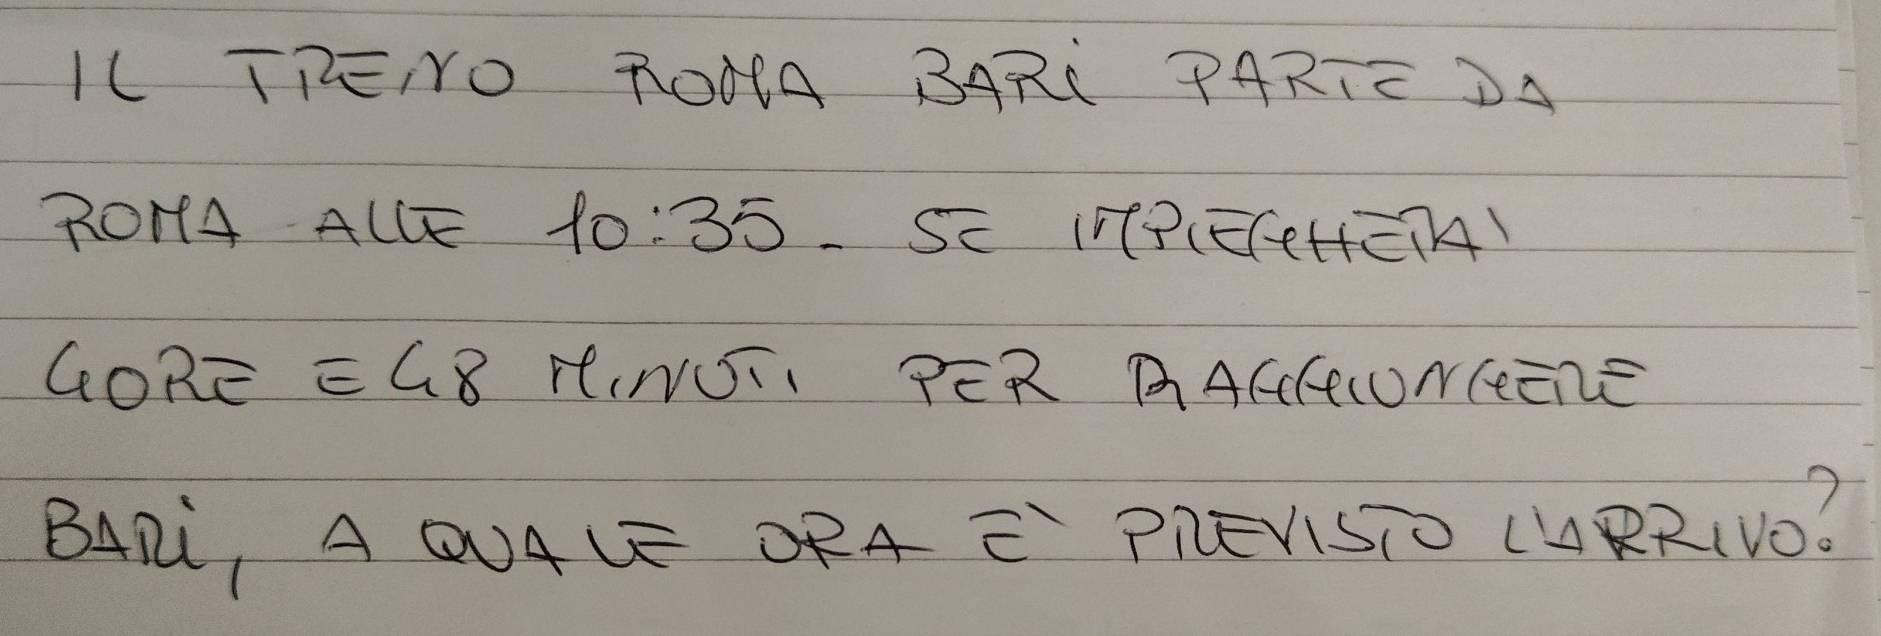 IL TRENO ROMA BARI PARTE DA
ROMA ALLE 10:35. SE IMPIEGHERA'
4 ORE E 48 MINUTI PER RAGGIUNGERE
BARI, A QUALE ORA E' PREVISTO L'ARRIVO?